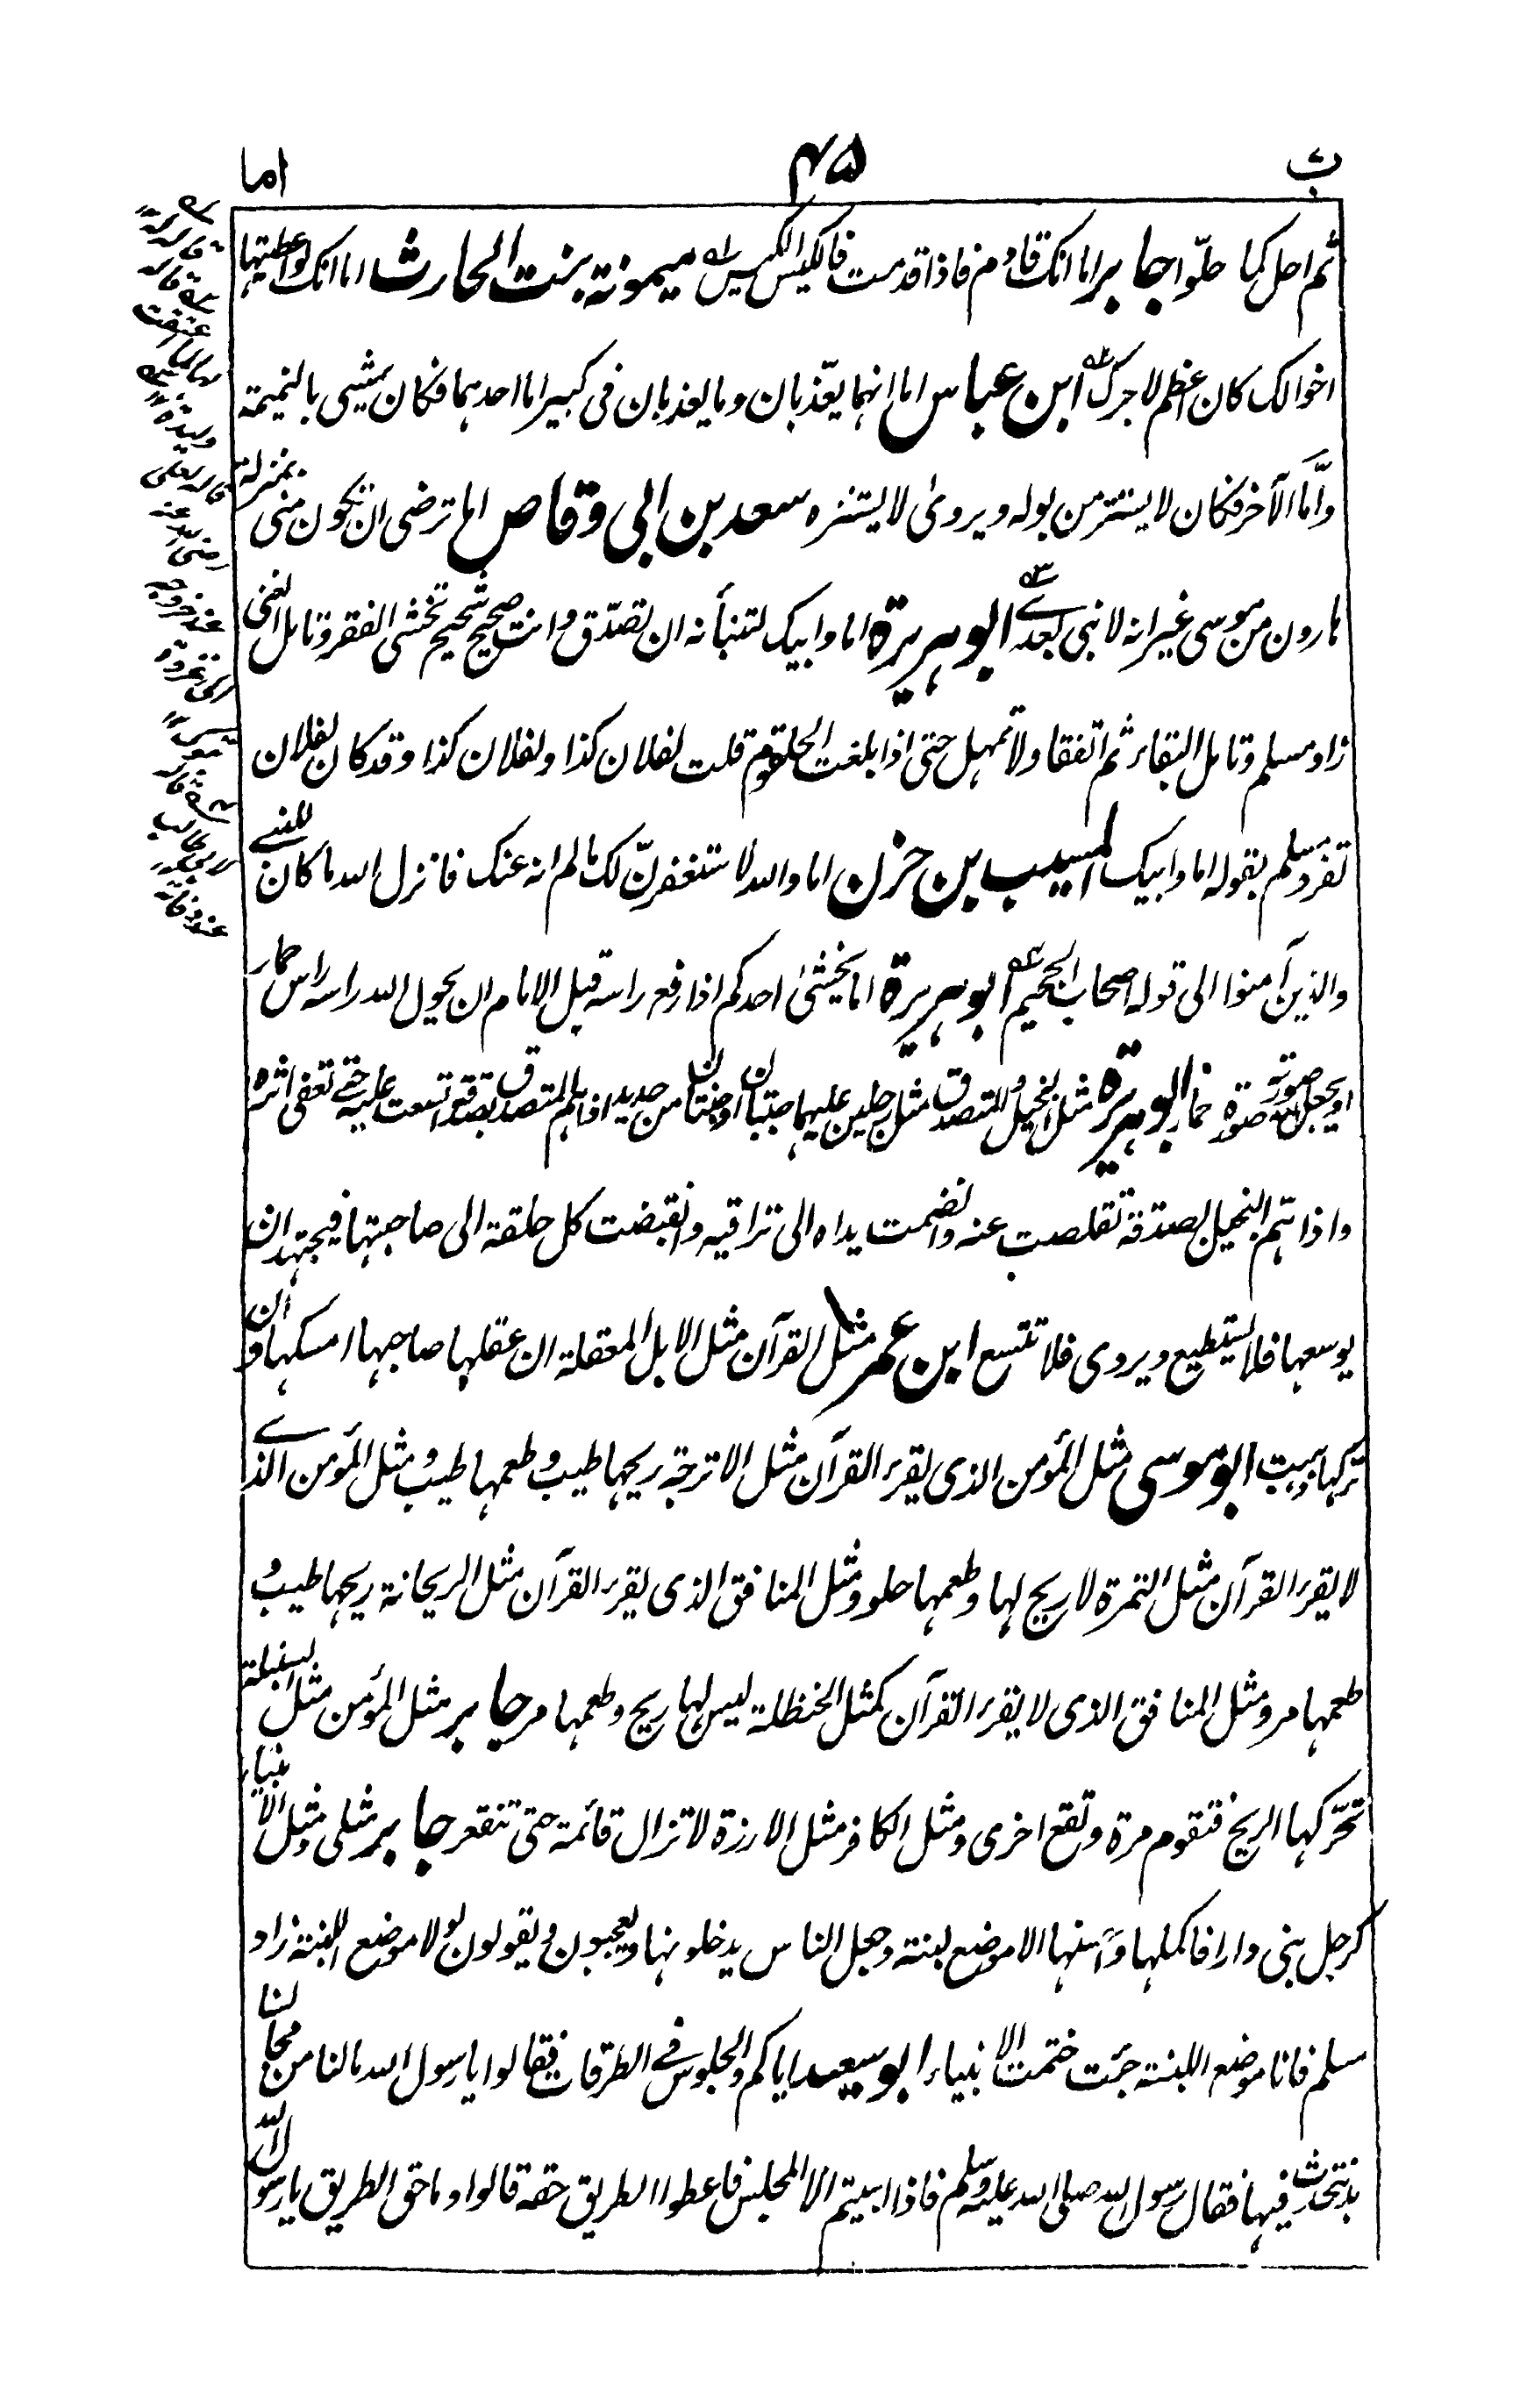 ب ۴۵ اما
ثم احل کما حلّوا جابر اما انک قادم فاذا قدمت فالکیس الکیس میمونة بنت الحارث اما انک لو اعطیتها
اخوالک کان اعظم لاجرک ابن عباس اما انهما یعذّبان وما یعذبان فی کبیر اما احدهما فکان یمشی بالنمیمة
وامّا الآخر فکان لا یستتر من بوله ویروی لا یستنزه سعد بن ابی وقاص اما ترضی ان تکون منی بمنزلة
هارون من موسی غیر انه لا نبی بعدی ابو هریرة اما وابیک لتنبأنه ان تصدّق وانت صحیح شحیح تخشی الفقر وتامل الغنی
زاد مسلم وتامل البقاء ثم اتفقا ولا تمهل حتی اذا بلغت الحلقوم قلت لفلان کذا ولفلان کذا وقد کان لفلان
تفرد مسلم بقوله اما وابیک المسیب بن حزن اما والله لاستغفرنّ لک ما لم انه عنک فانزل الله ما کان للنبی
والذین آمنوا الی قوله اصحاب الجحیم ابو هریرة اما یخشیٰ احدکم اذا رفع راسه قبل الامام ان یحول الله راسه راس حمار
او یجعل الله صورته صورة حمار ابو هریرة مثل البخیل والمتصدق مثل رجلین علیهما جبتان او جنتان من حدید اذا هم المتصدق بصدقة اتسعت علیه حتی تعفی اثره
واذا هم البخیل بصدقة تقلصت عنه وانضمت یداه الی تراقیه وانقبضت کل حلقة الی صاحبتها فیجتهد ان
یوسعها فلا یستطیع ویروی فلا تتسع ابن عمر مثل القرآن مثل الابل المعقلة ان عقلها صاحبها امسکها وان
ترکها ذهبت ابو موسی مثل المؤمن الذی یقرء القرآن مثل الاترجة ریحها طیب وطعمها طیب ومثل المؤمن الذی
لا یقرء القرآن مثل التمرة لا ریح لها وطعمها حلو ومثل المنافق الذی یقرء القرآن مثل الریحانة ریحها طیب و
طعمها مر ومثل المنافق الذی لا یقرء القرآن کمثل الحنظلة لیس لها ریح وطعمها مر جابر مثل المؤمن مثل السنبلة
تحرّکها الریح فتقوم مرة وتقع اخری ومثل الکافر مثل الارزة لا تزال قائمة حتی تنقعر جابر مثلی ومثل الانبیاء
کرجل بنی دارا فاکملها واحسنها الا موضع لبنة وجعل الناس یدخلونها ویعجبون ویقولون لولا موضع اللبنة زاد
مسلم فانا موضع اللبنة جئت ختمت الانبیاء ابو سعید ایاکم والجلوس فی الطرقات فقالوا یا رسول الله ما لنا من مجالسنا
بد نتحدث فیها فقال رسول الله صلی الله علیه وسلم فاذا ابیتم الا المجلس فاعطوا الطریق حقه قالوا وما حق الطریق یا رسول الله